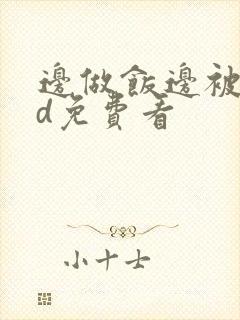 邊做飯邊被
d免費看
小十士